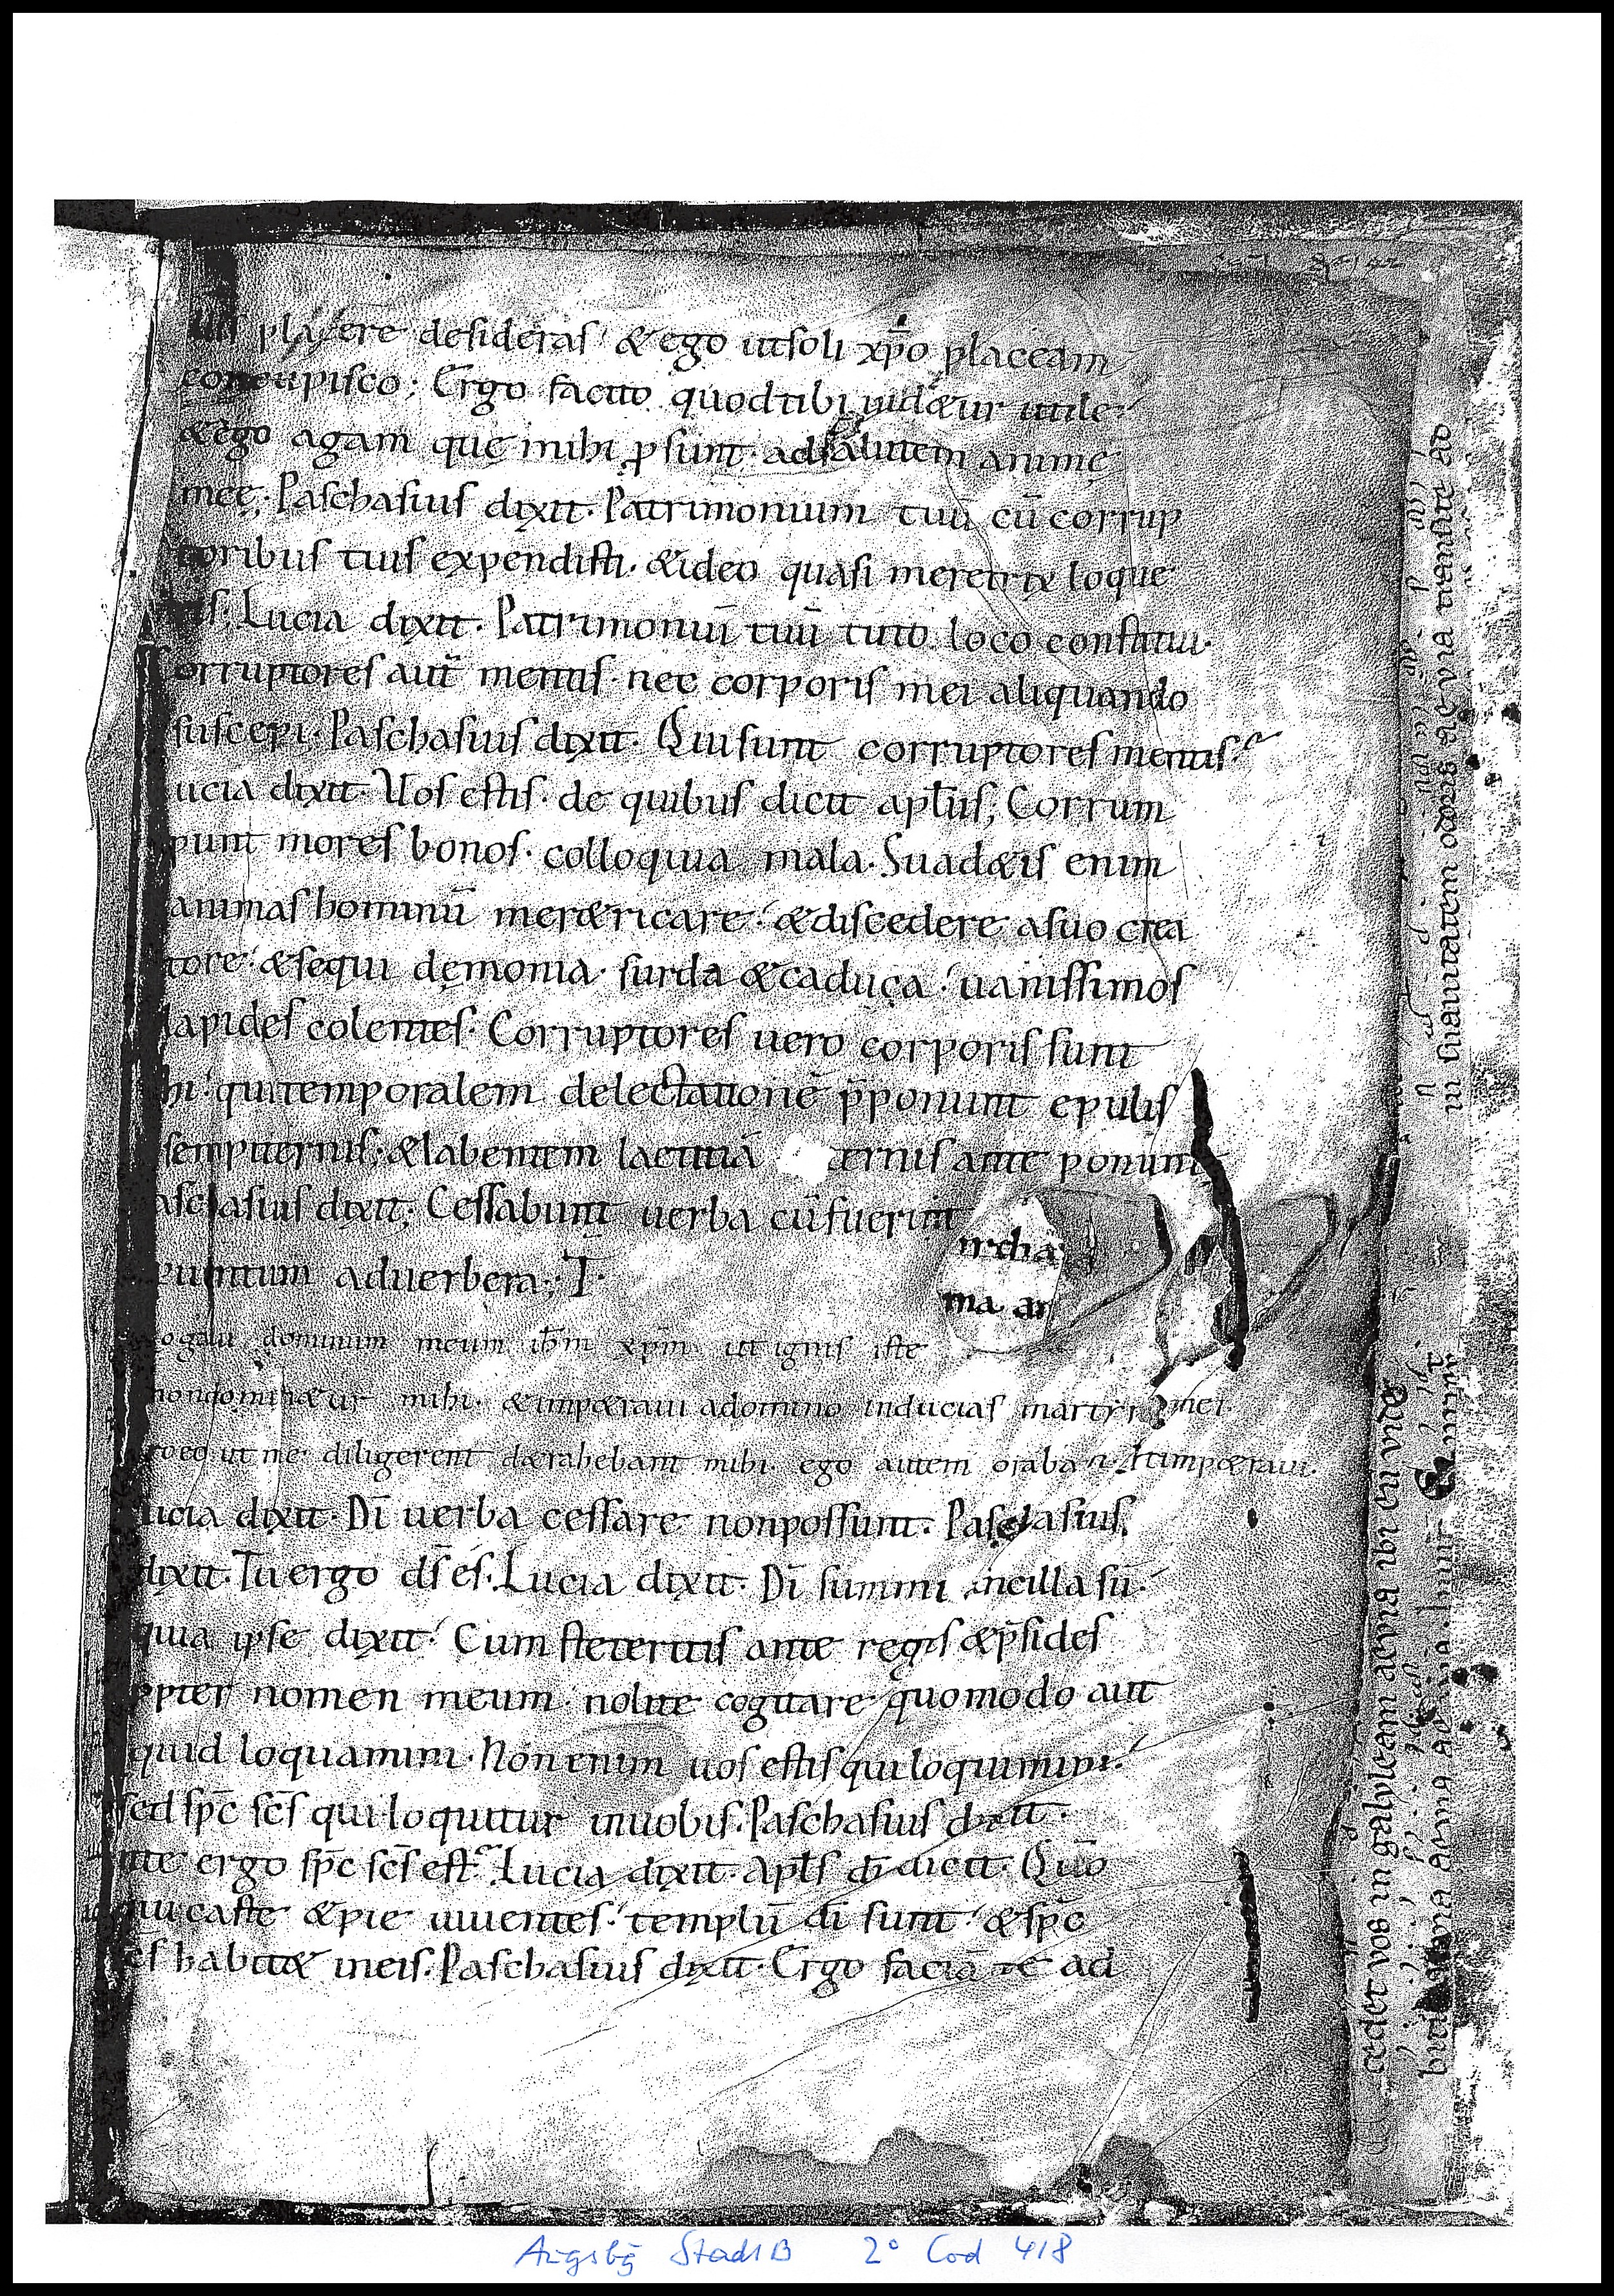 placere desideras. & ego ut soli xp̄o placeam
concupisco; Ergo facito quod tibi uid&ur utile.
& ego agam quę mihi ꝓsunt ad salutem animę
meę. Paschasius dixit. Patrimonium tuū cū corrup
toribus tuis expendisti. & ideo quasi meretrix loque
ris; Lucia dixit. Patrimoniū tuū tuto loco constitui.
orruptores aut̄ mentis. nec corporis mei aliquando
suscepi. Paschasius dixit. Qui sunt corruptores mentis?
ucia dixit. Uos estis. de quibus dicit apłus; Corrum
punt mores bonos. colloquia mala. Suad&is enim
animas hominū mer&ricare. & discedere a suo crea
tore. & sequi dęmonia surda & caduca. uanissimos
lapides colentes. Corruptores uero corporis sunt
hi. qui temporalem delectationē p̄ponunt epulis
sempiternis; & labentem laetitiā &ernis ante ponunt
aschasius dixit; Cessabunt uerba cū fuerint
uentum ad uerbera; T.
rcha
ma ar
rogaui dominum meum ih̄m xp̄m ut ignis iste
non domin&ur mihi. & imp&raui a domino inducias martyrii mei.
ro eo ut me diligerent d&rahebant mihi. ego autem orabam & imp&raui.
ucia dixit. Dī uerba cessare non possunt. Paschasius
dixit. Tu ergo ds̄ es. Lucia dixit. Dī summi ancilla sū.
quia ipse dixit. Cum steteritis ante reges & p̄sides
ꝓpter nomen meum. nolite cogitare quomodo aut
quid loquamini. Non enim uos estis qui loquimini.
sed sp̄c sc̄s qui loquitur in uobis. Paschasius dixit.
te ergo sp̄c sc̄s est? Lucia dixit. Apłs dī dicit. Quō
qui caste & pie uiuentes. templū dī sunt. & sp̄c
sc̄s habit& in eis. Paschasius dixit. Ergo faciā te ad
cedet vos in galyleam aevia ibi eū vide
in suavitatem odoris aevia transite ad
Augsbg StadtB 2° Cod 418